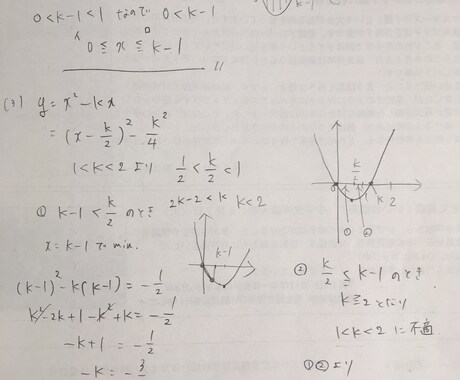 0<k-1<1 なので 0<k-1
0≦x≦k-1
k-1
(3) y=x²-kx
=(x-k/2)²-k²/4
1<k<2より 1/2<k/2<1
① k-1<k/2 のとき 2k-2<k k<2
x=k-1でmin.
k-1
(k-1)²-k(k-1)=-1/2
k²-2k+1-k²+k=-1/2
-k+1=-1/2
-k=-3/2
0 k/2 1 k 2
① ②
② k/2≦k-1 のとき
k≧2となり
1<k<2に不適
①②より